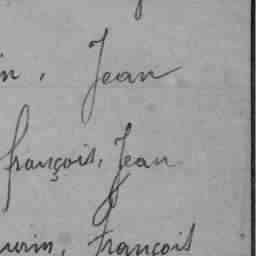 n, Jean
françois, Jean
urin, françois